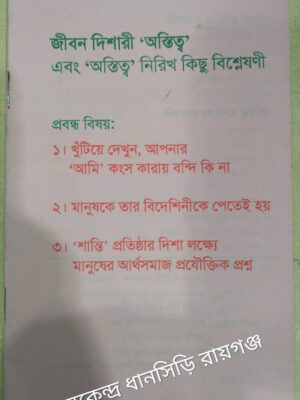 জীবন দিশারী ‘অস্তিত্ব’
এবং ‘অস্তিত্ব’ নিরিখ কিছু বিশ্লেষণী
প্রবন্ধ বিষয়:
১। খুঁটিয়ে দেখুন, আপনার
‘আমি’ কংস কারায় বন্দি কি না
২। মানুষকে তার বিদেশিনীকে পেতেই হয়
৩। ‘শান্তি’ প্রতিষ্ঠার দিশা লক্ষ্যে
মানুষের আর্থসমাজ প্রযৌক্তিক প্রশ্ন
ধানসিড়ি রায়গঞ্জ